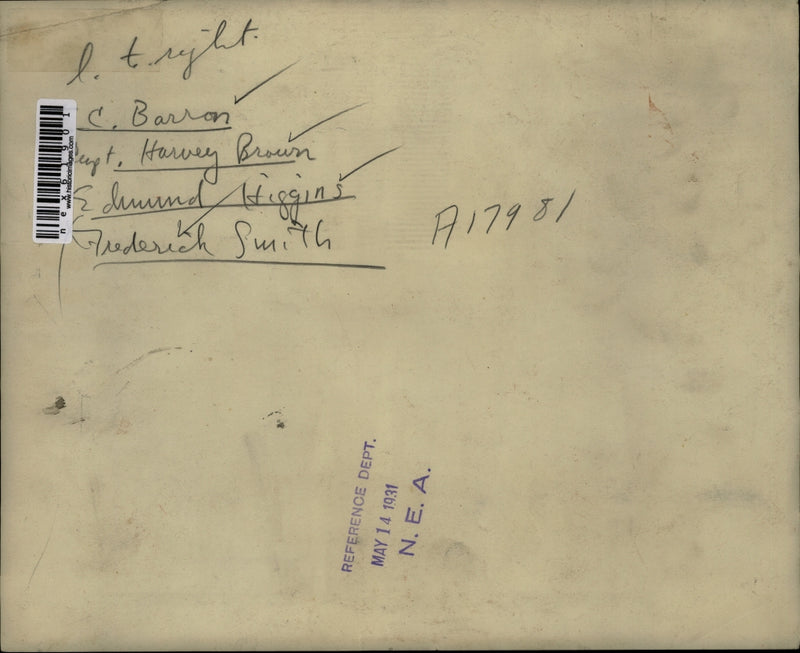 l. t. right.
C. Barron
Capt. Harvey Brown
Edmund Higgins
Frederick Smith
A17981
REFERENCE DEPT.
MAY 14 1931
N. E. A.
nex619701
www.historicimages.com